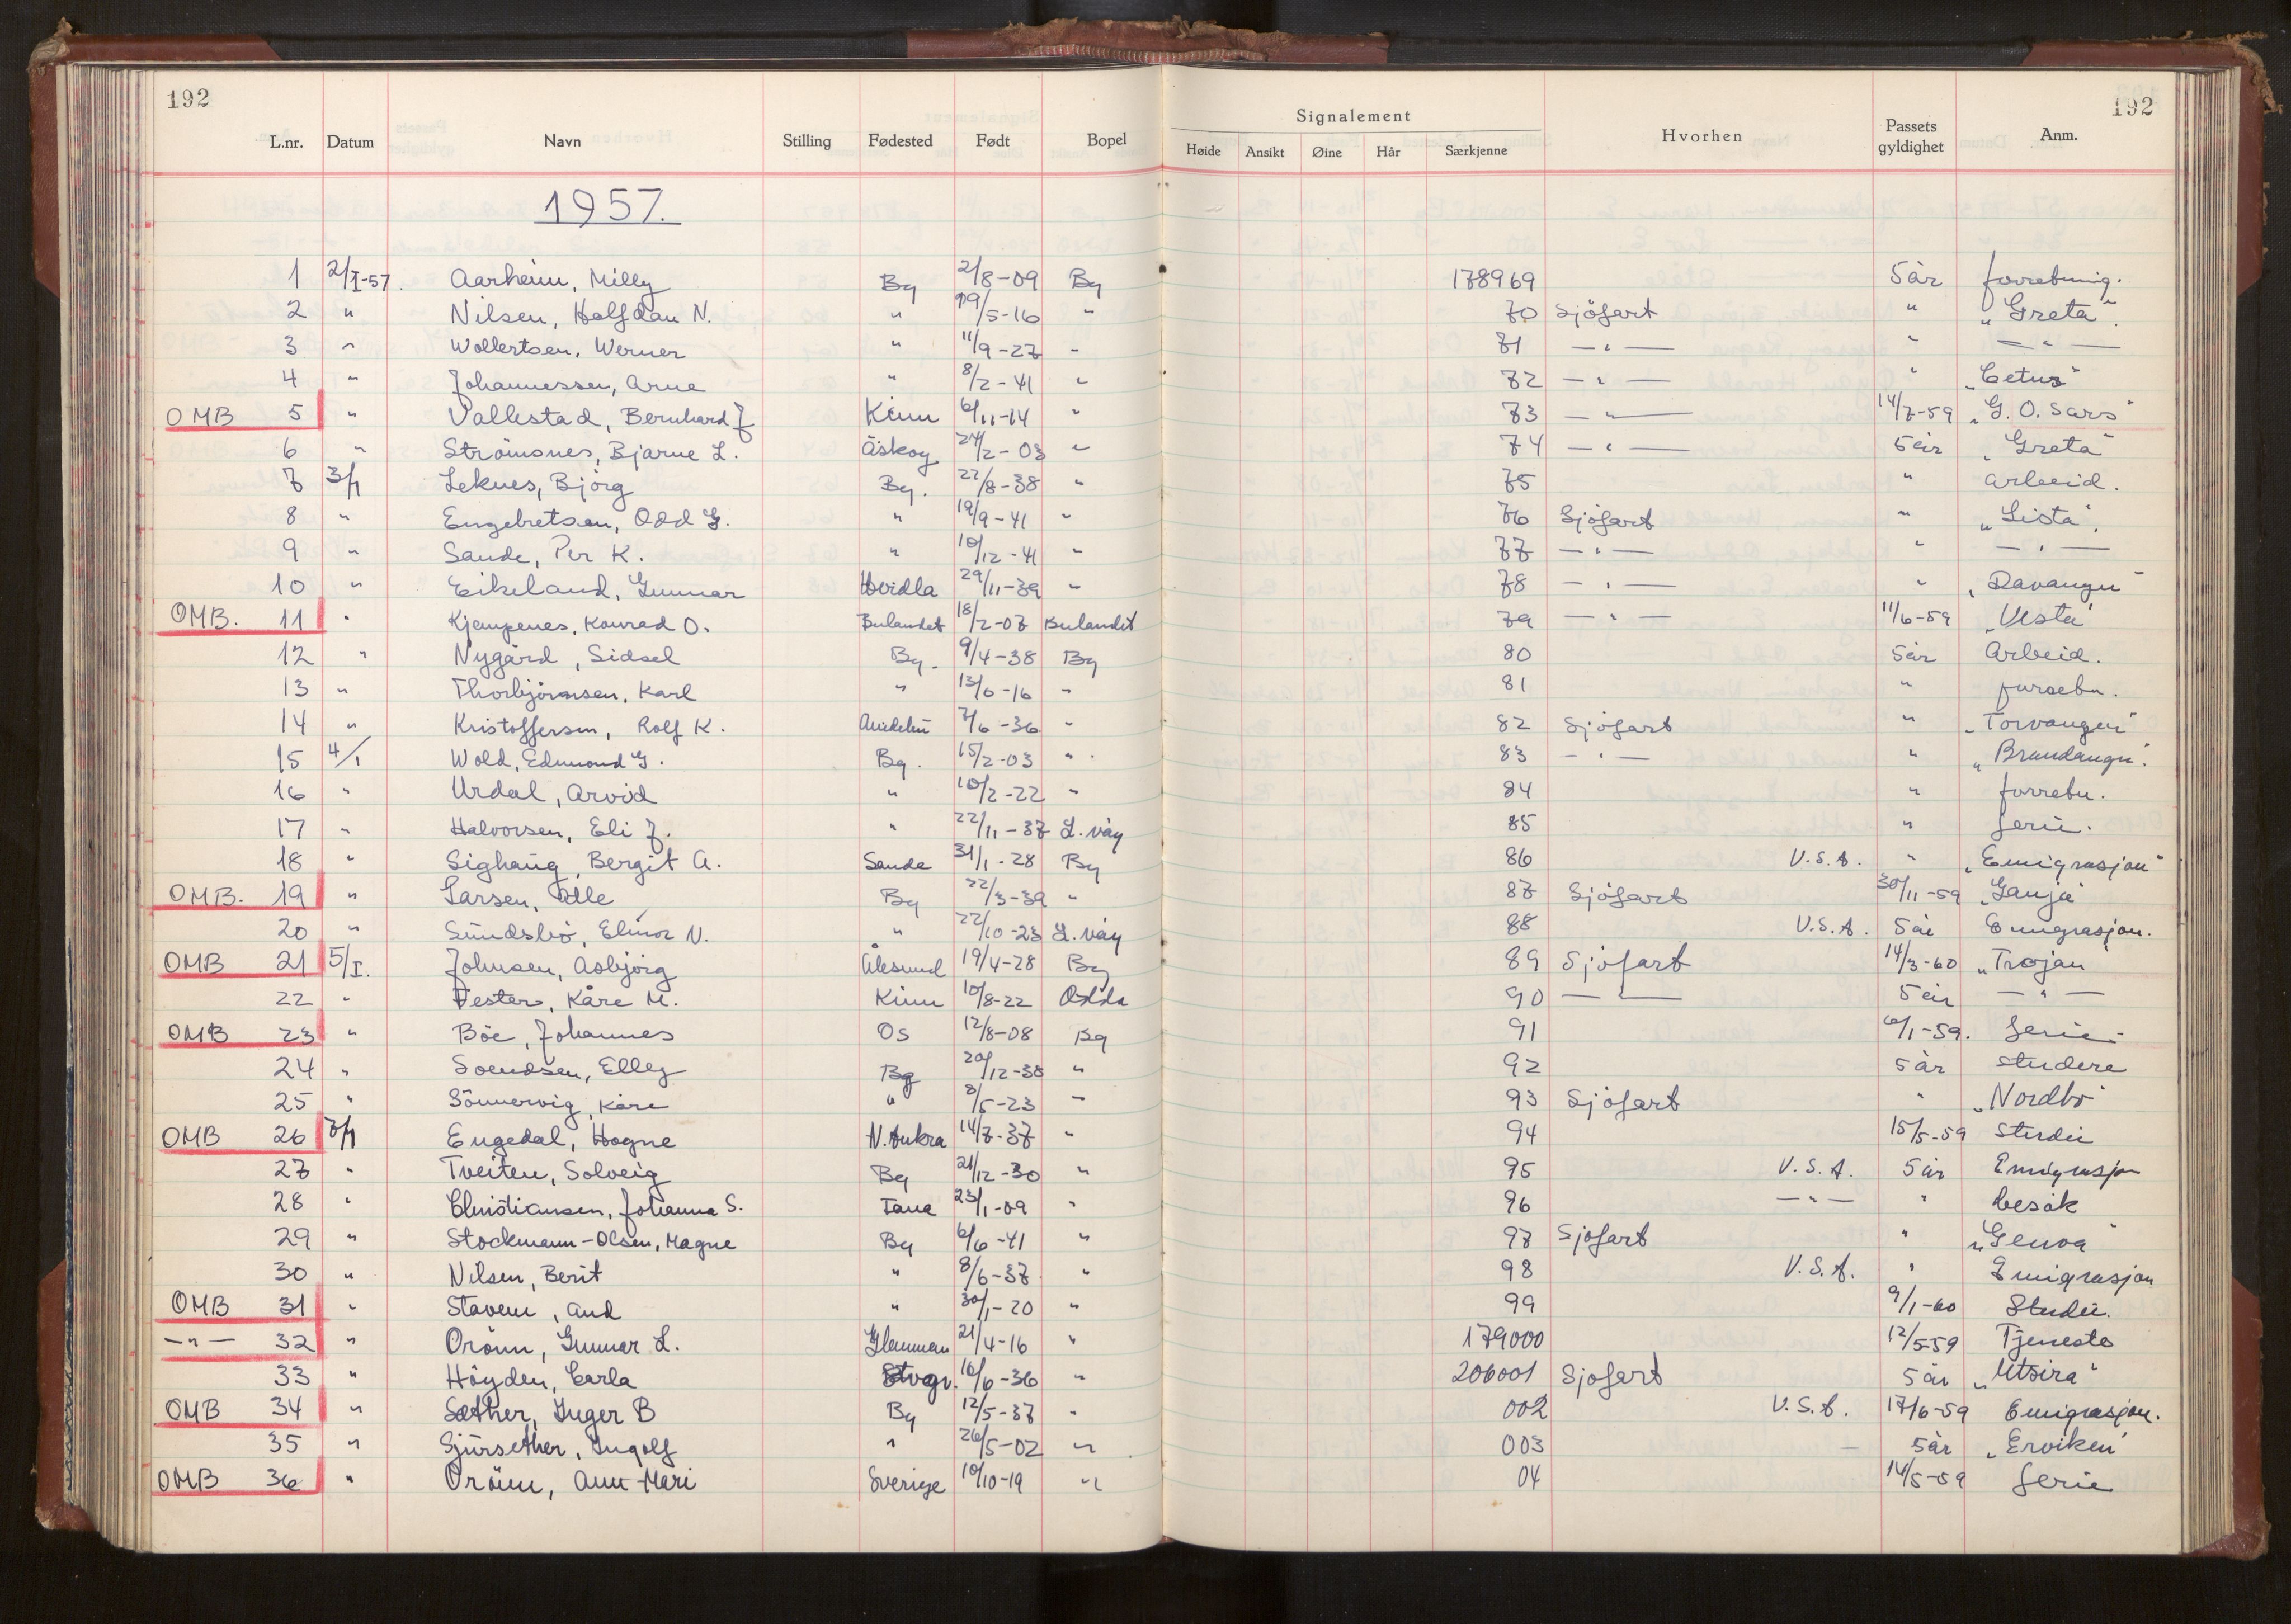 192 192
Signalement
L.nr. Datum Navn Stilling Fødested Født Bopel Høide Ansikt Øine Hår Særkjenne Hvorhen Passets gyldighet Anm.
1957.
1 2/I-57. Aarheim, Milly Bg 2/8-09 Bg 178969 5 år forretning.
2 " Nilsen, Halfdan N. " 19/5-16 " 70 Sjöfart " "Greta".
3 " Wollertsen, Werner " 11/9-27 - 71 — " — " — " —
4 " Johannessen, Arne " 8/2-41 " 72 — " — " "Cetus"
OMB 5 " Vallestad, Bernhard J Kinn 6/11-14 " 73 — " — 14/7-59 "G. O. Sars"
6 " Strömsnes, Bjarne L. Askøy 24/2-03 " 74 — " — 5 år "Greta"
7 3/1 Leknes, Bjørg Bg. 22/8-38 " 75 " arbeid.
8 " Engebretsen, Odd G. " 19/9-41 " 76 Sjöfart " "Lista".
9 " Sande, Per K. " 10/12-41 " 77 — " — " — " —
10 " Eikeland, Gunnar Herdla 29/11-39 " 78 — " — " "Davanger"
OMB. 11 " Kjempenes, Konrad O. Bulandet 18/2-07 Bulandet 79 — " — 11/6-59 "Vesta"
12 " Nygård, Sidsel Bg. 9/4-38 Bg 80 5 år Arbeid.
13 " Thorbjörnsen, Karl " 13/6-16 " 81 " forretn.
14 " Kristoffersen, Rolf K. 7/6-36 " 82 Sjöfart " "Torvanger"
15 4/1 Wold, Edmund G. Bg. 15/2-03 " 83 — " — " "Brandanger".
16 " Urdal, Arvid " 10/2-22 " 84 " forretn.
17 " Halvorsen, Eli J. " 22/11-37 L. våg 85 " ferie.
18 " Sighaug, Bergit A. Sande 31/1-28 Bg 86 U.S.A. " "Emigrasjon"
OMB. 19 " Larsen, Olle Bg 22/3-39 " 87 Sjöfart 30/11-59 "Ganja"
20 " Sundsbø, Elinor N. " 22/10-23 L. våg 88 U.S.A. 5 år Emigrasjon.
OMB 21 5/I. Johnsen, Asbjörg Ålesund 19/4-28 Bg 89 Sjöfart 14/3-60 "Trojan"
22 " Vester, Kåre M. Kinn 10/8-22 Odda 90 — " — 5 år — " —
OMB 23 " Böe, Johannes Os 12/8-08 Bg 91 6/1-59. ferie.
24 " Svendsen, Elley Bg 20/12-38 " 92 5 år studere
25 " Sönnervig, Kåre " 8/5-23 " 93 Sjöfart " "Nordbö"
OMB 26 7/1 Engedal, Hogne N. Aukra 14/7-37 " 94 15/5-59 Studie
27 " Tveiten, Solveig Bg 21/12-30 " 95 U.S.A. 5 år Emigrasjon
28 " Christiansen, Johanna S. Fana 23/1-09 " 96 — " — " besøk
29 " Stockmann-Olsen, Magne Bg 6/6-41 " 97 Sjöfart " "Genoa"
30 " Nilsen, Berit " 8/6-37 " 98 U.S.A. " Emigrasjon
OMB 31 " Stavem, Aud " 30/1-20 " 99 9/1-60 Studie.
— " — 32 " Orönn, Gunnar L. 21/4-16 " 179000 12/5-59 Tjeneste
33 " Höyden, Carla Stvgr. 16/6-36 " 206001 Sjöfart 5 år "Utsira"
OMB 34 " Sæther, Inger B Bg 12/5-37 " 002 U.S.A. 17/6-59 Emigrasjon.
35 " Gjürsether, Ingolf " 26/5-02 " 003 — 5 år "Erviken"
OMB 36 " Orönn, Ann-Mari Sverige 10/10-19 " 04 14/5-59 ferie